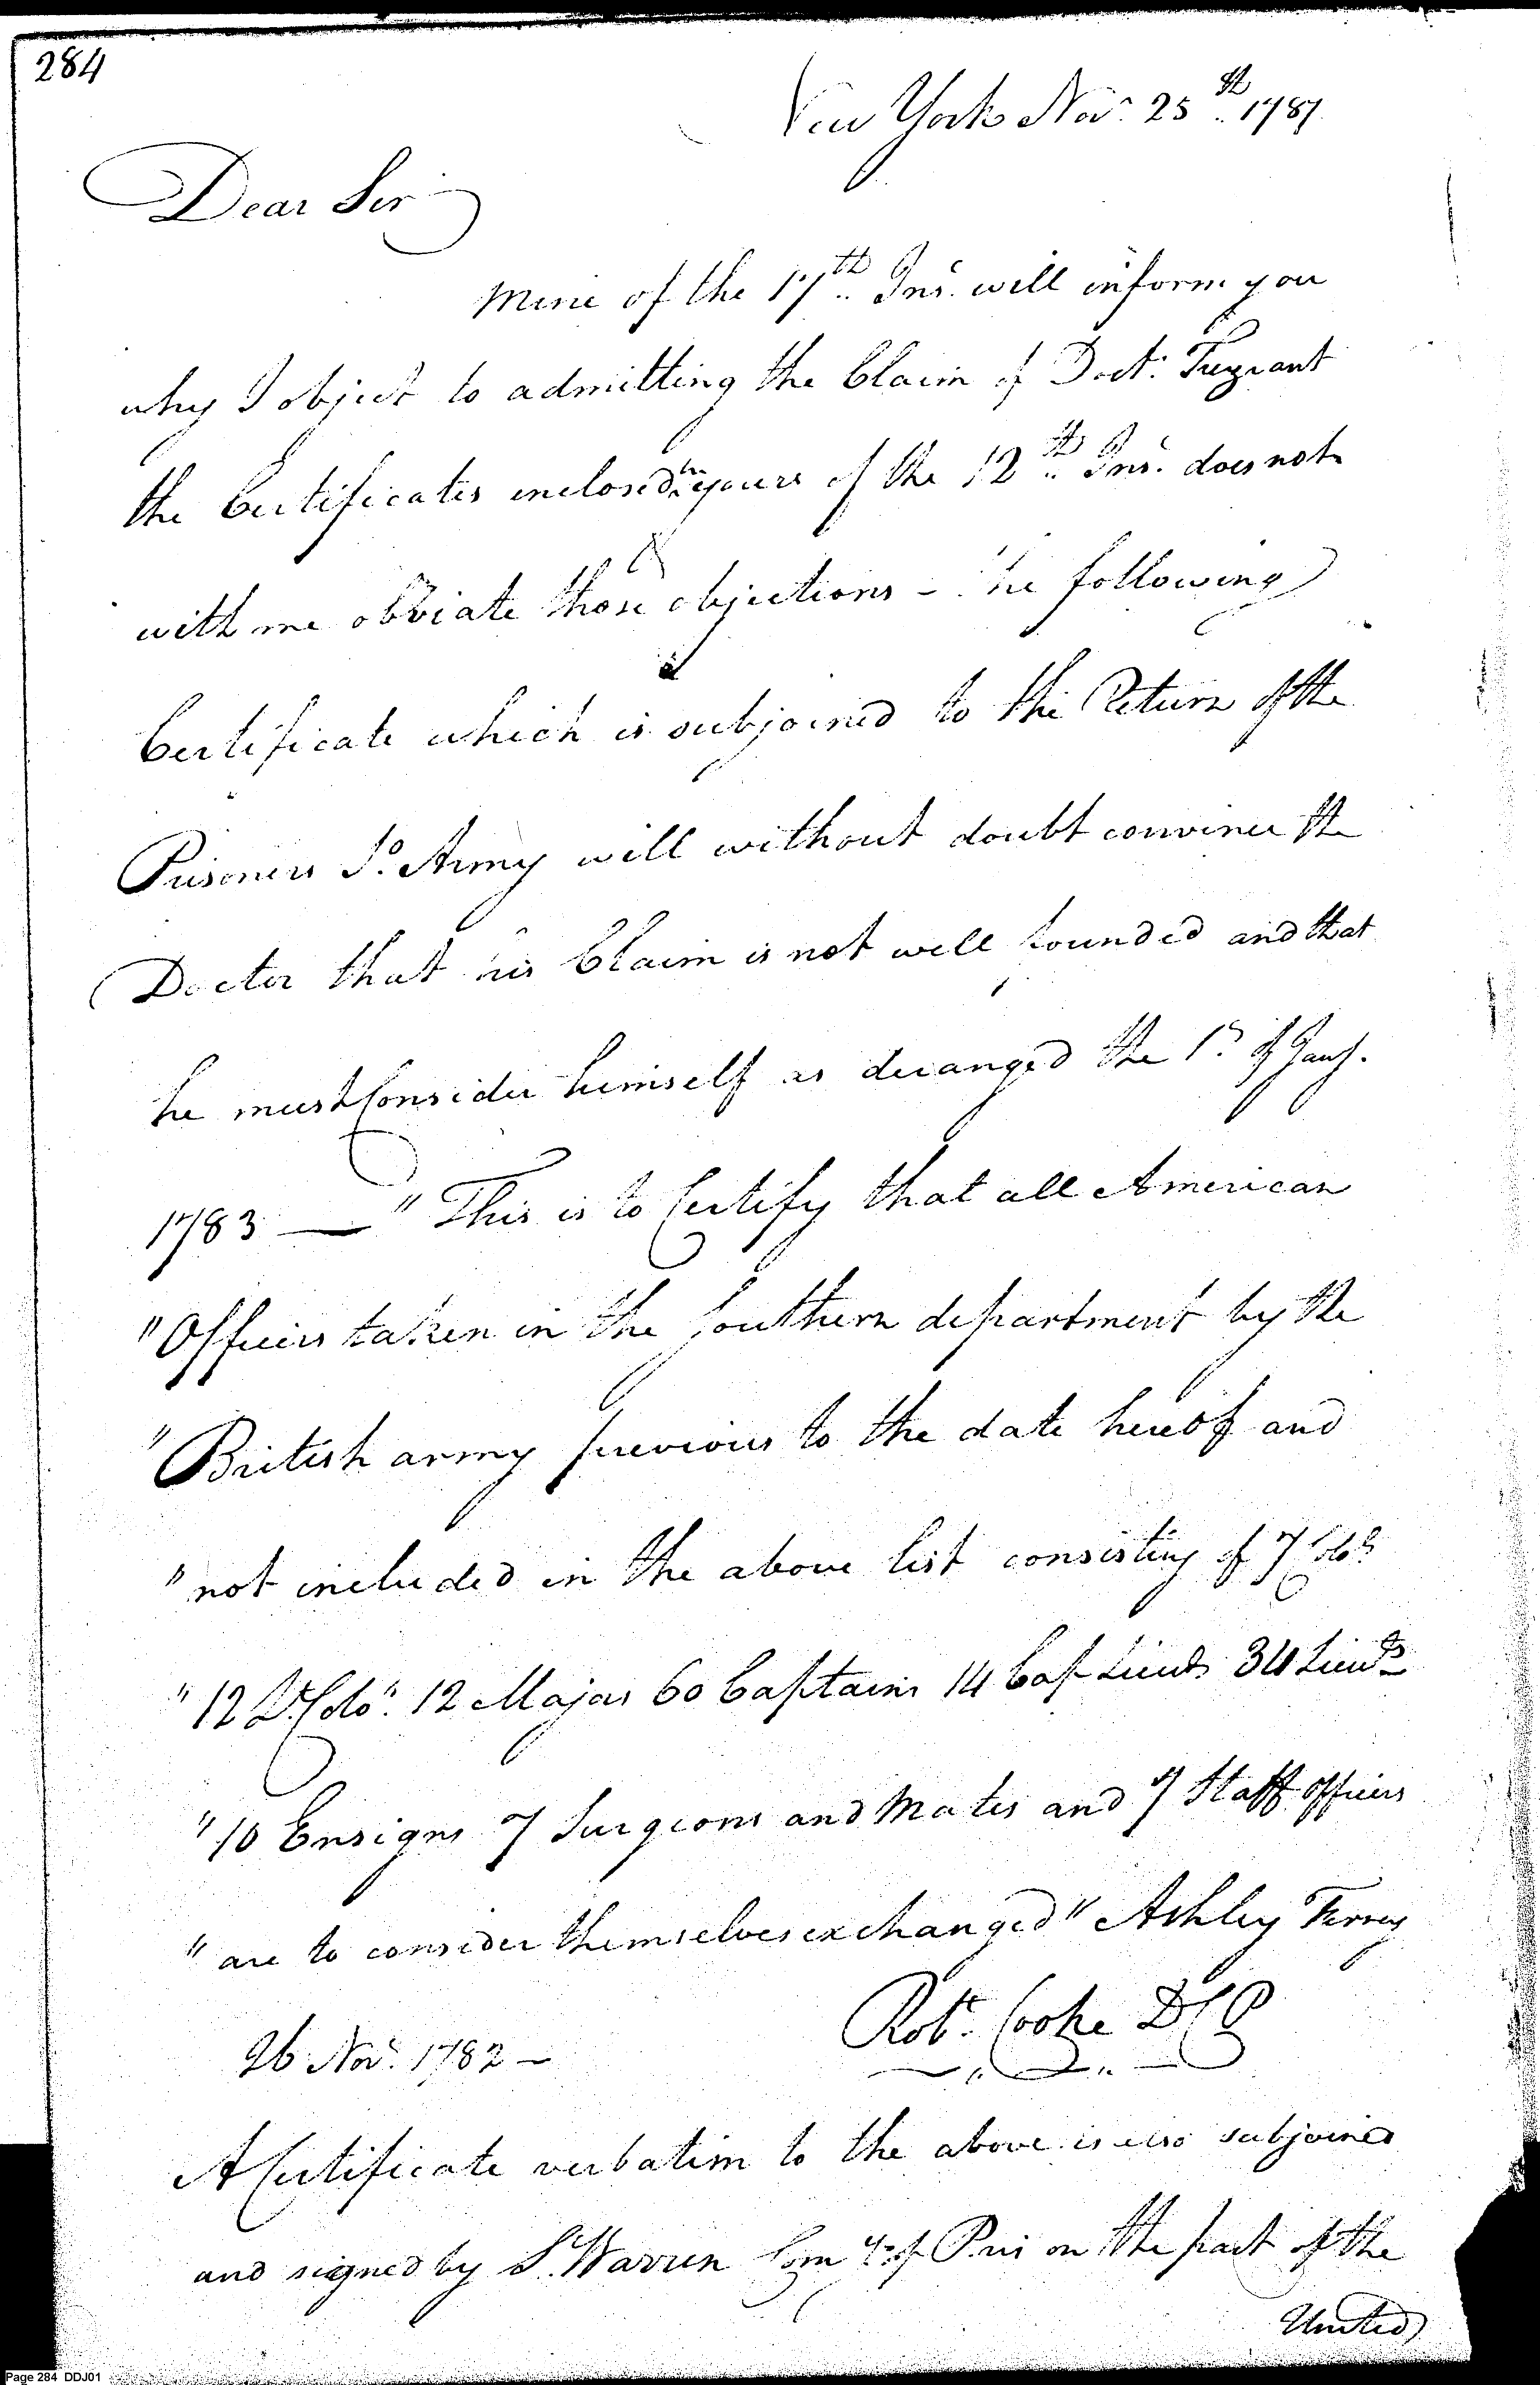 284
New York Nov.r 25th 1787
Dear Sir
Mine of the 17th Ins.t will inform you
why I object to admitting the Claim of Doct.r Trezvant
the Certificates enclosed in yours of the 12th Ins.t does not
with me obviate those objections - The following
Certificate which is subjoined to the Return of the
Prisoners So. Army will without doubt convince the
Doctor that his Claim is not well founded and that
he must Consider himself as deranged the 1st of Jany.
1783 — " This is to Certify that all American
" Officers taken in the Southern department by the
" British army previous to the date hereof and
" not included in the above list consisting of 7 Cols
" 12 Lt Colo.s 12 Majors 60 Captains 14 Cap Lieuts 34 Lieuts
" 10 Ensigns 7 Surgeons and Mates and 7 Staff officers
" are to consider themselves exchanged " Ashley Ferrey
26 Nov.r 1782 — Rob.t Cooke D C P
A Certificate verbatim to the above is also subjoined
and signed by S. Warren Com.y of Pris on the part of the
United
Page 284 DDJ01